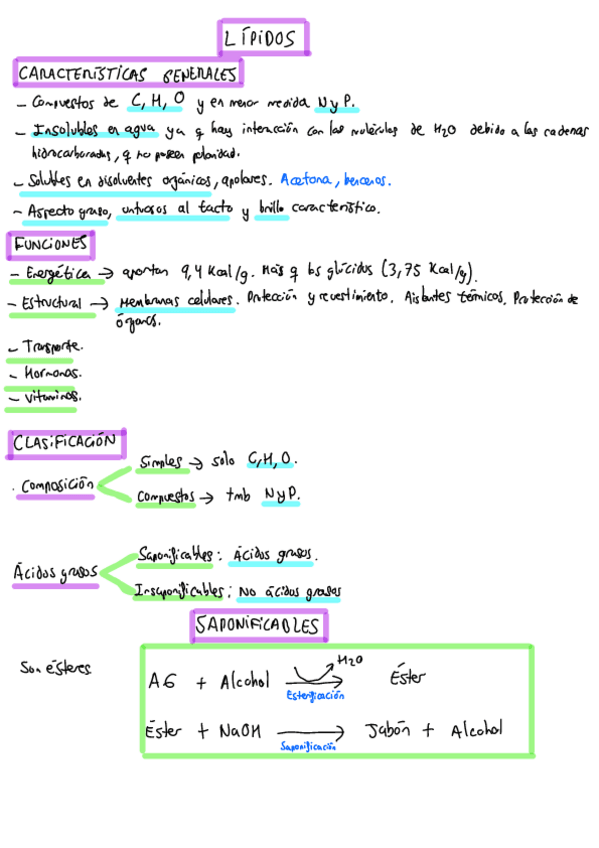 LÍPIDOS
CARACTERÍSTICAS GENERALES
- Compuestos de C, H, O y en menor medida N y P.
- Insolubles en agua ya q hay interacción con las moléculas de H2O debido a las cadenas
hidrocarbonadas, q no poseen polaridad.
- Solubles en disolventes orgánicos, apolares. Acetona, bencenos.
- Aspecto graso, untuosos al tacto y brillo característico.
FUNCIONES
- Energética → aportan 9,4 Kcal/g. Más q los glúcidos (3,75 Kcal/g).
- Estructural → Membranas celulares. Protección y revestimiento. Aislantes térmicos. Protección de
órganos.
- Transporte.
- Hormonas.
- Vitaminas.
CLASIFICACIÓN
Simples → solo C, H, O.
. Composición
Compuestos → tmb N y P.
Saponificables: Ácidos grasos.
Ácidos grasos
Insaponificables: No ácidos grasos
SAPONIFICABLES
Son ésteres
AG + Alcohol → H2O Éster
Esterificación
Éster + NaOH → Jabón + Alcohol
Saponificación